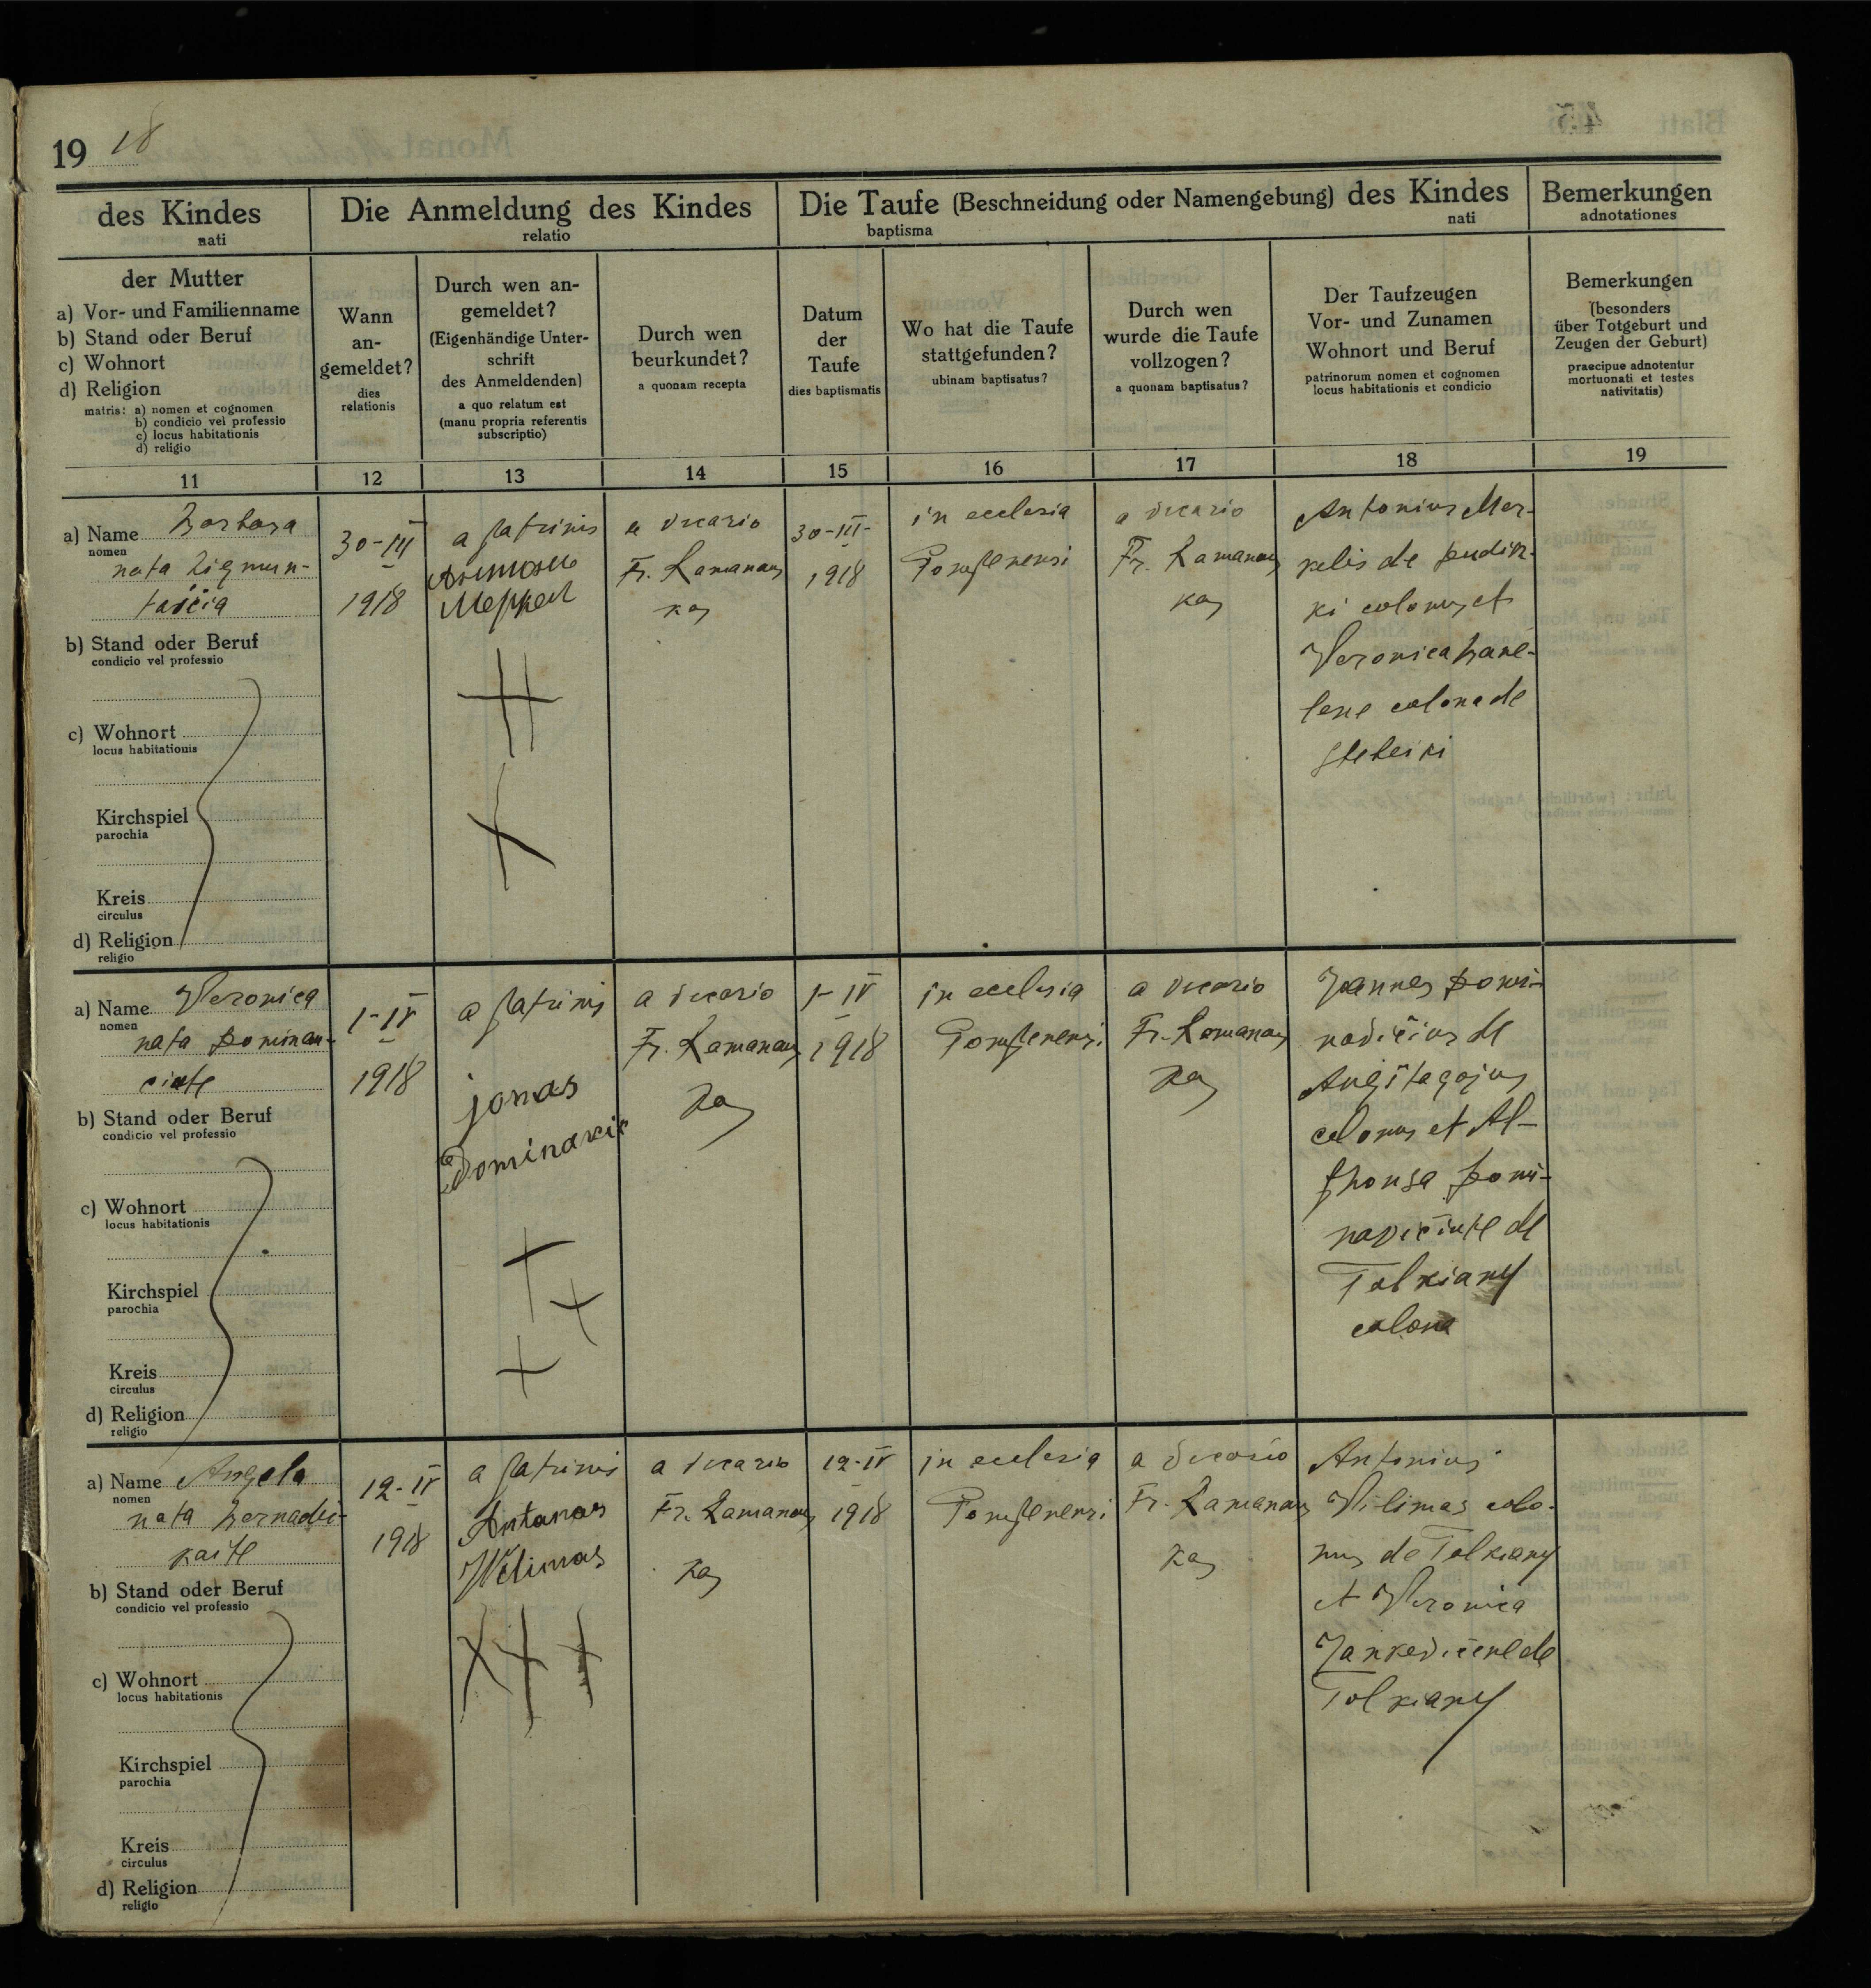 19 18
des Kindes
nati
Die Anmeldung des Kindes
relatio
Die Taufe (Beschneidung oder Namengebung) des Kindes
baptisma nati
Bemerkungen
adnotationes
der Mutter
a) Vor- und Familienname
b) Stand oder Beruf
c) Wohnort
d) Religion
matris: a) nomen et cognomen
b) condicio vel professio
c) locus habitationis
d) religio
Wann
an-
gemeldet?
dies
relationis
Durch wen an-
gemeldet?
(Eigenhändige Unter-
schrift
des Anmeldenden)
a quo relatum est
(manu propria referentis
subscriptio)
Durch wen
beurkundet?
a quonam recepta
Datum
der
Taufe
dies baptismatis
Wo hat die Taufe
stattgefunden?
ubinam baptisatus?
Durch wen
wurde die Taufe
vollzogen?
a quonam baptisatus?
Der Taufzeugen
Vor- und Zunamen
Wohnort und Beruf
patrinorum nomen et cognomen
locus habitationis et condicio
Bemerkungen
(besonders
über Totgeburt und
Zeugen der Geburt)
praecipue adnotentur
mortuonati et testes
nativitatis)
11 12 13 14 15 16 17 18 19
a) Name Barbara
nomen
nata Zigmun-
taičia
b) Stand oder Beruf
condicio vel professio
c) Wohnort
locus habitationis
Kirchspiel
parochia
Kreis
circulus
d) Religion
religio
30-III
1918
a patrinis
Меркел
a vicario
Fr. Ramanaus
kas
30-III-
1918
in ecclesia
Pompenensi
a vicario
Fr. Ramanaus
kas
Antonius Mer-
kelis de Pudin-
ki colonus et
Veronica Zane-
lene colona de
Steteiki
a) Name Veronica
nomen
nata Dominau-
ciute
b) Stand oder Beruf
condicio vel professio
c) Wohnort
locus habitationis
Kirchspiel
parochia
Kreis
circulus
d) Religion
religio
1-IV
1918
a patrinis
jonas
Dominavič
a vicario
Fr. Ramanaus
kas
1-IV
1918
in ecclesia
Pompenensi
a vicario
Fr. Ramanaus
kas
Joannes Domi-
navičius de
colonus et Al-
phonsa Domi-
navičiute de
Talkiany
colona
a) Name Angela
nomen
nata Bernadic-
kaite
b) Stand oder Beruf
condicio vel professio
c) Wohnort
locus habitationis
Kirchspiel
parochia
Kreis
circulus
d) Religion
religio
12-IV
1918
a patrinis
Antanas
Wilimas
a vicario
Fr. Ramanaus
kas
12-IV
1918
in ecclesia
Pompenensi
a vicario
Fr. Ramanaus
kas
Antonius
Vilimas colo-
nus de Talkiany
et Veronica
Jankevičene de
Talkiany